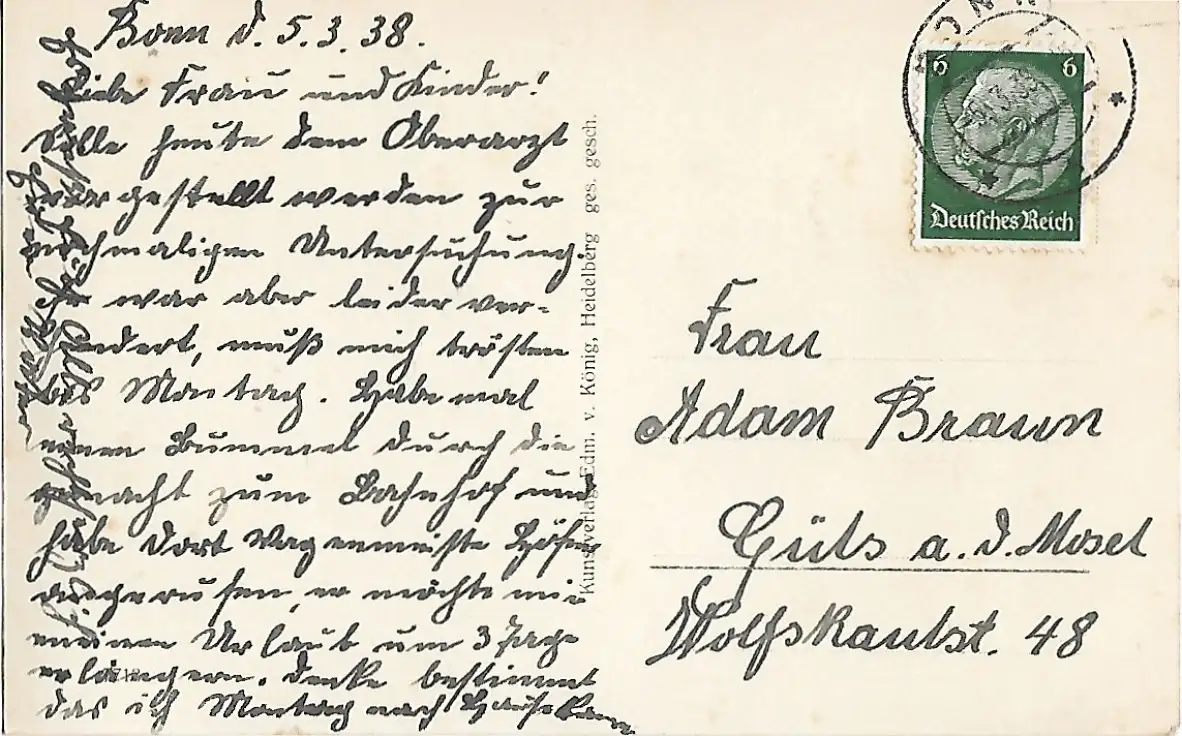 Bonn d. 5.3.38.
Liebe Frau und Kinder!
Sollte heute dem Oberarzt
vorgestellt werden zur
nochmaligen Untersuchung.
Er war aber leider ver-
hindert, muß mich trösten
bis Montag. Habe mal
einen Bummel durch die
gemacht zum Bahnhof und
habe dort Wagenmeister
angerufen, er möchte mir
meinen Urlaub um 3 Tage
verlängern. Denke bestimmt
das ich Montag nach Hause kann
Kunstverlag Edm. v. König, Heidelberg ges. gesch.
6 6
Deutsches Reich
BONN
Frau
Adam Braun
Güls a. d. Mosel
Wolfskaulst. 48